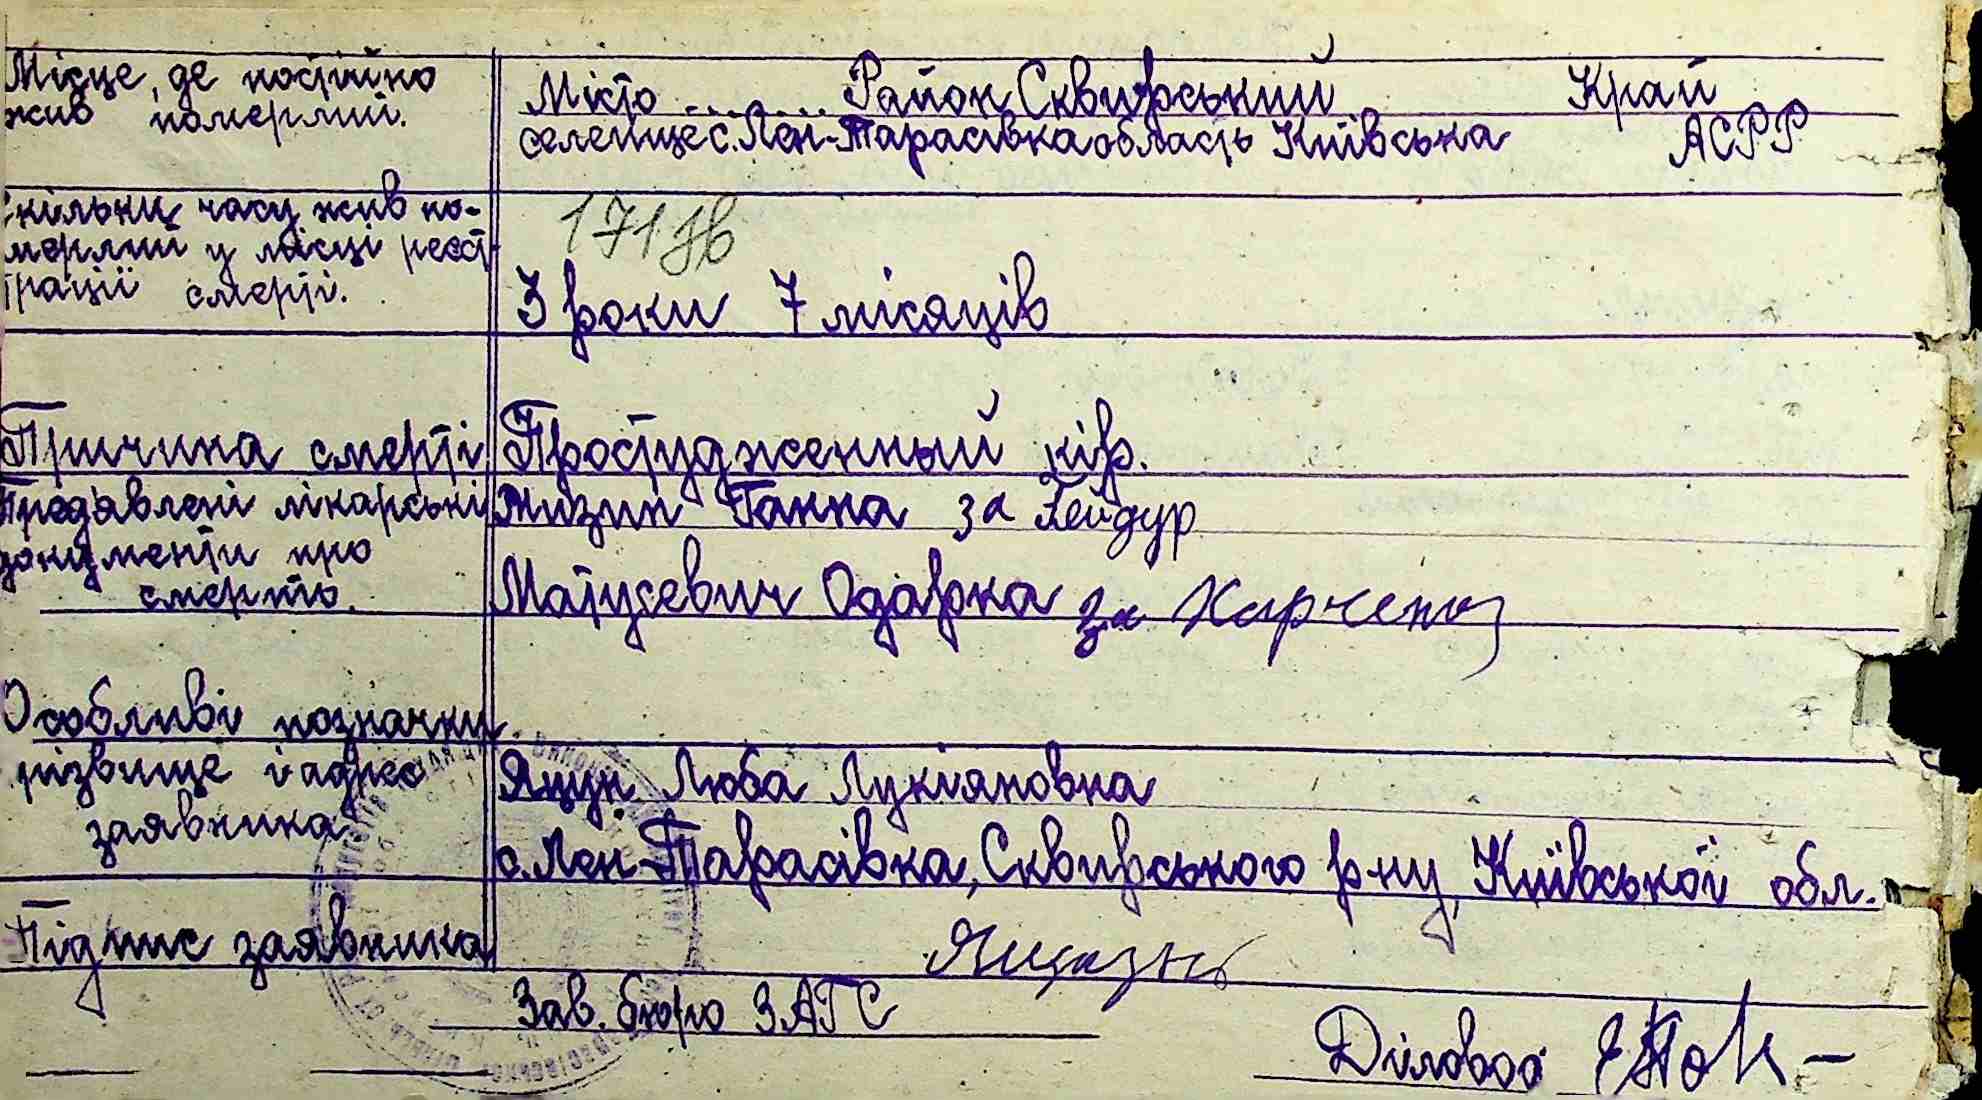 Місце, де постійно
жив померлий.
Місто ........ Район Сквирський Край
селеище с. Лен-Тарасівка область Київська АСРР
скільки часу жив по-
мерлий у місці реєст-
рації смерті.
171
3 роки 7 місяців
Причина смерті Простудженный кір.
Предявлені лікарські
документи про
смерть.
Ганна за
Матусевич Одарка за Харченко
Особливі позначки
прізвище і адрес
заявника
Яцун Люба Лукіяновна
с. Лен-Тарасівка, Сквирського р-ну, Київської обл.
Підпис заявника
Зав. бюро ЗАГС
Діловод